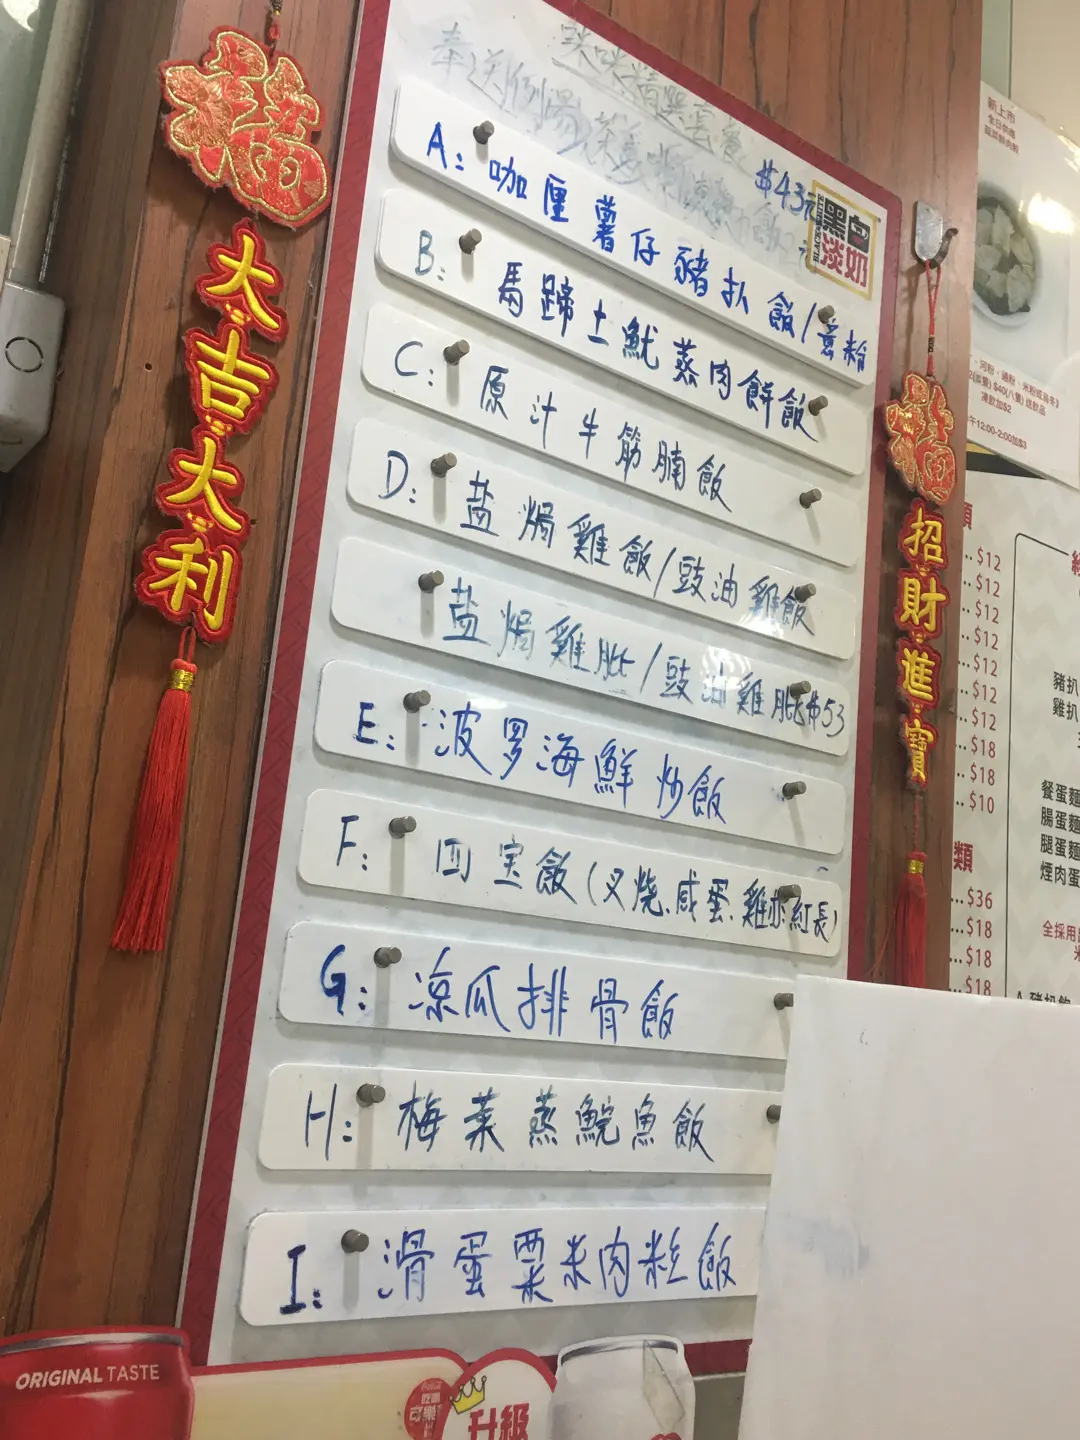 福
大吉大利
$43元
黑白淡奶
A: 咖喱薯仔豬扒飯/意粉
B: 馬蹄土魷蒸肉餅飯
C: 原汁牛筋腩飯
D: 盐焗雞飯/豉油雞飯
盐焗雞肶/豉油雞肶$53
E: 波罗海鮮炒飯
F: 四宝飯(叉烧.咸蛋.雞亦.紅長)
G: 凉瓜排骨飯
H: 梅菜蒸鯇魚飯
I: 滑蛋粟米肉粒飯
招財進寶
新上市
全日供應
凍飲加$2
..$12
..$12
..$12
..$12
..$12
..$12
..$12
..$18
..$18
..$10
類
...$36
...$18
...$18
...$18
豬扒
雞扒
餐蛋麵
腸蛋麵
腿蛋麵
煙肉蛋
全採用
ORIGINAL TASTE
可樂
升級